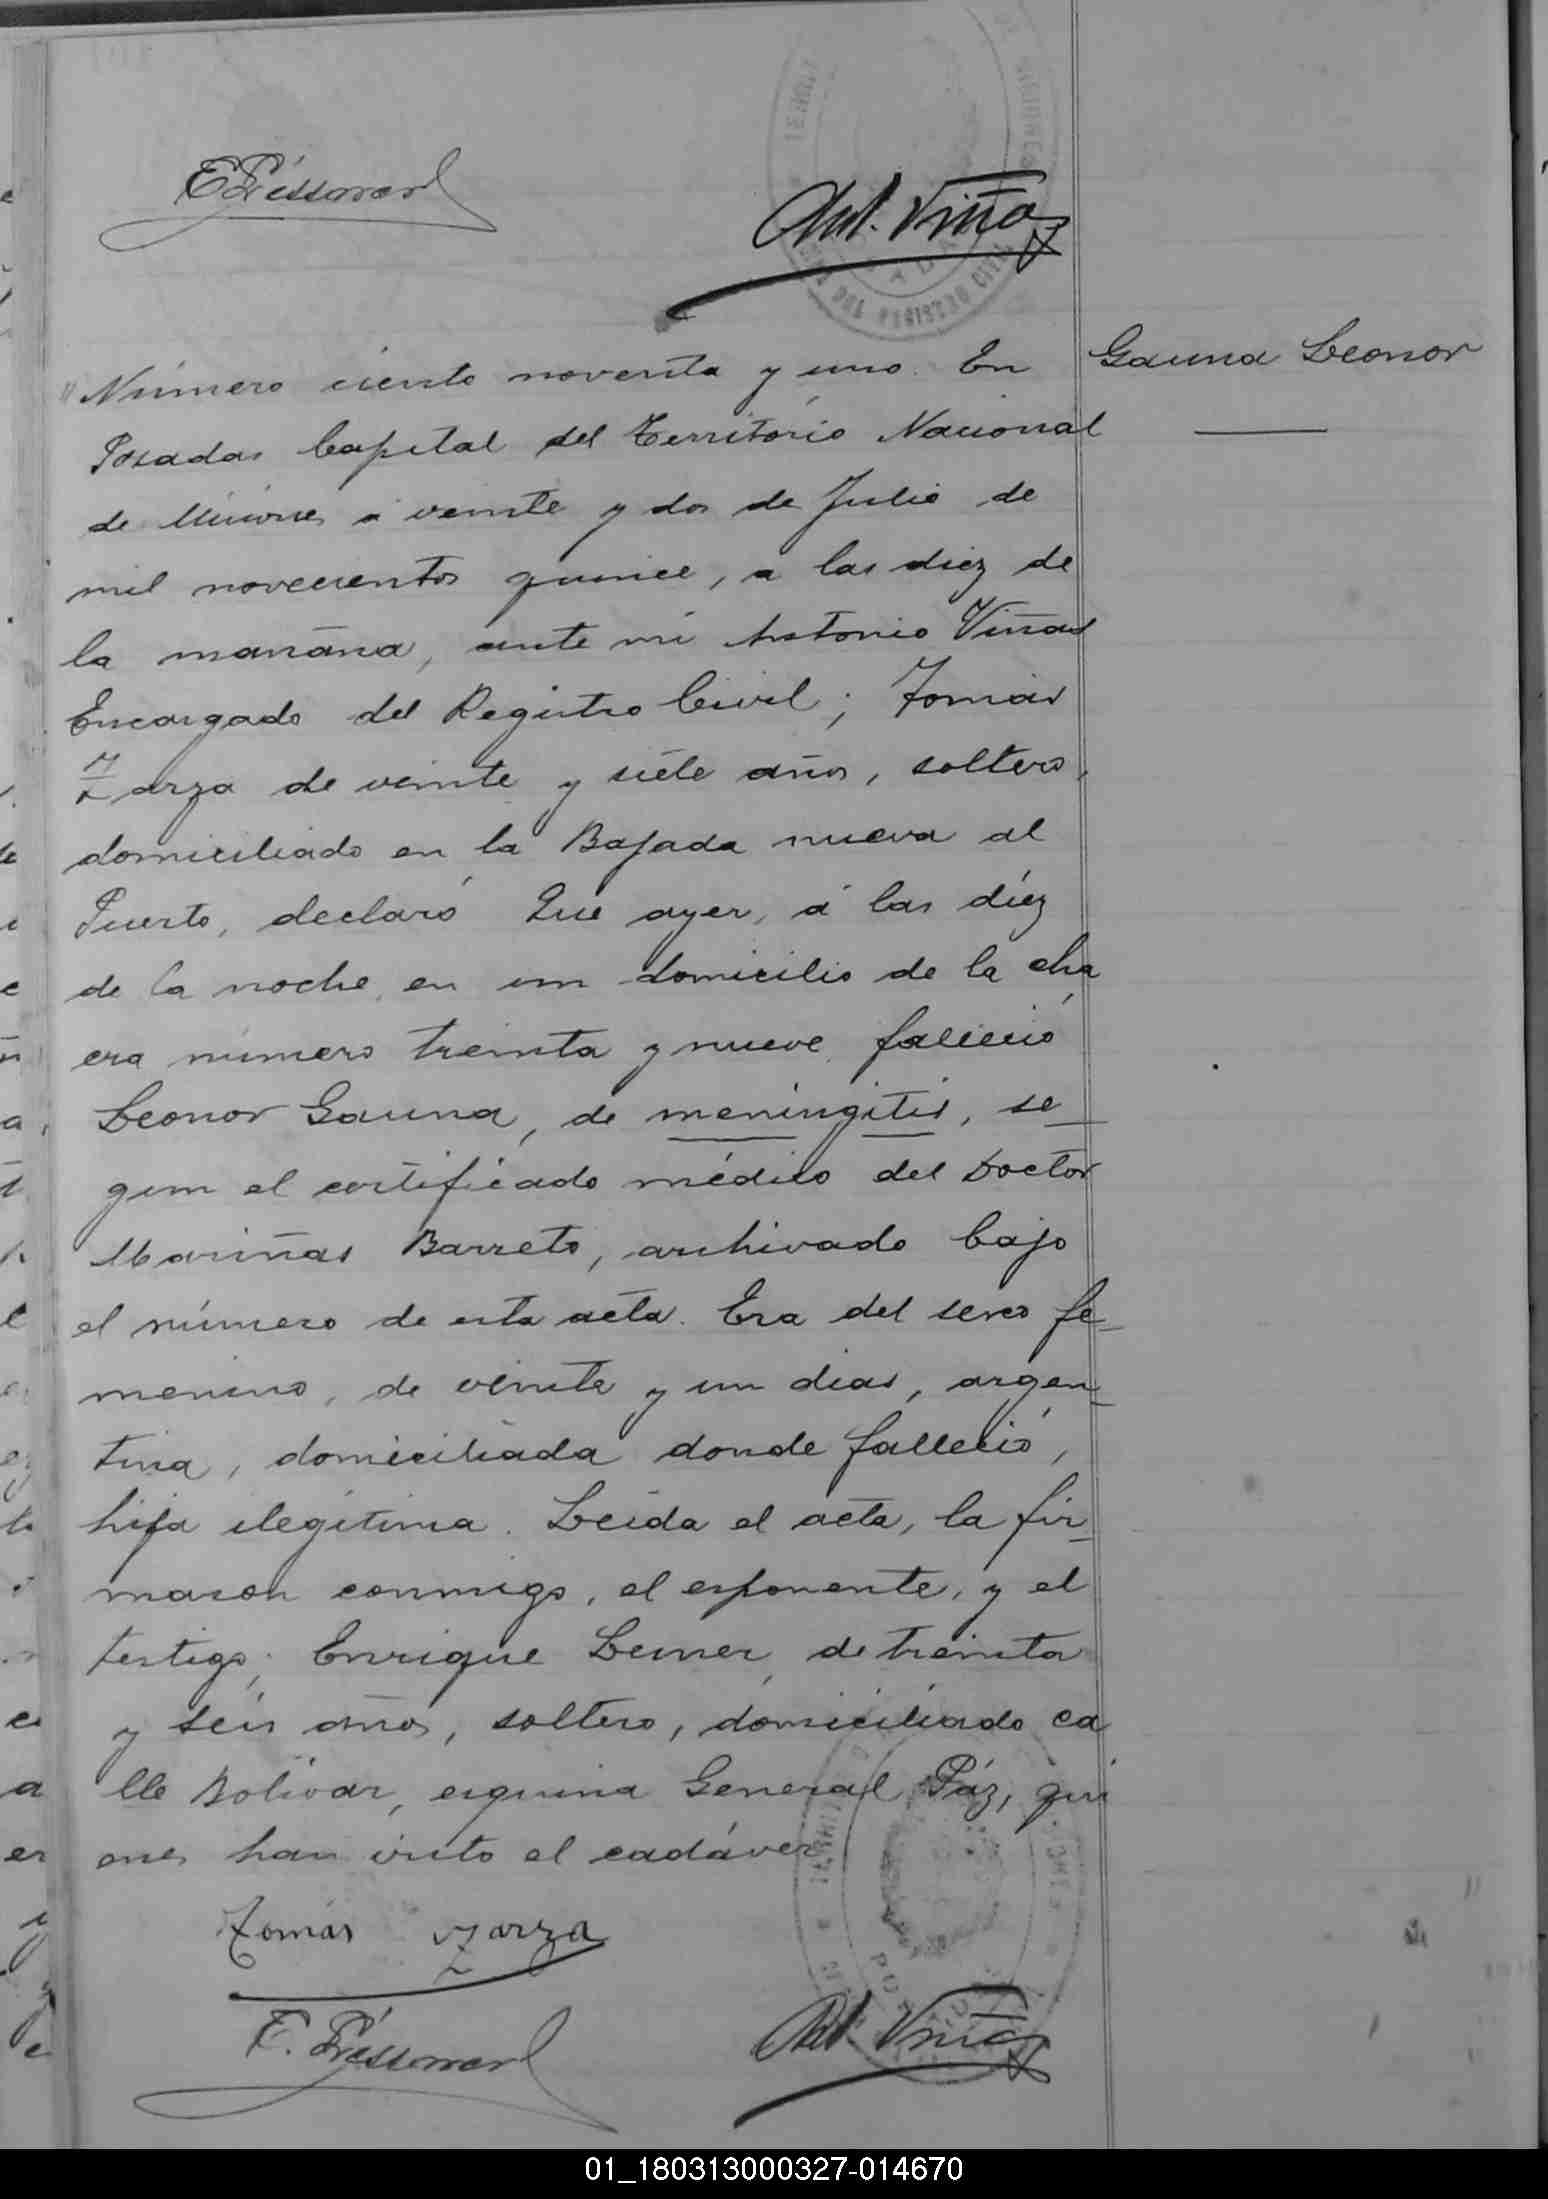 Ant. Viñas
Número ciento noventa y uno. En
Gauna Leonor
Posadas Capital del Território Nacional
de Misiones á veinte y dos de Julio de
mil novecientos quince, a las diez de
la mañana, ante mi Antonio Viñas
Encargado del Registro Civil; Tomás
Zarza de veinte y siete años, soltero,
domiciliado en la Bajada nueva al
Puerto, declaró Que ayer, á las diéz
de la noche, en un domicilio de la cha
cra número treinta y nueve, falleció
Leonor Gauna, de meningitis, se
gun el certificado médico del Doctor
Mariñas Barreto, archivado bajo
el número de esta acta. Era del sexo fe-
menino, de veinte y un dias, argen-
tina, domiciliada donde falleció,
hija ilegítima. Leida el acta, la fir-
maron conmigo, el exponente, y el
testigo; Enrique de treinta
y seis años, soltero, domiciliado ca
lle Bolivar, esquina General Páz, qui
enes han visto el cadáver
Tomás Zarza
Ant. Viñas
01_180313000327-014670